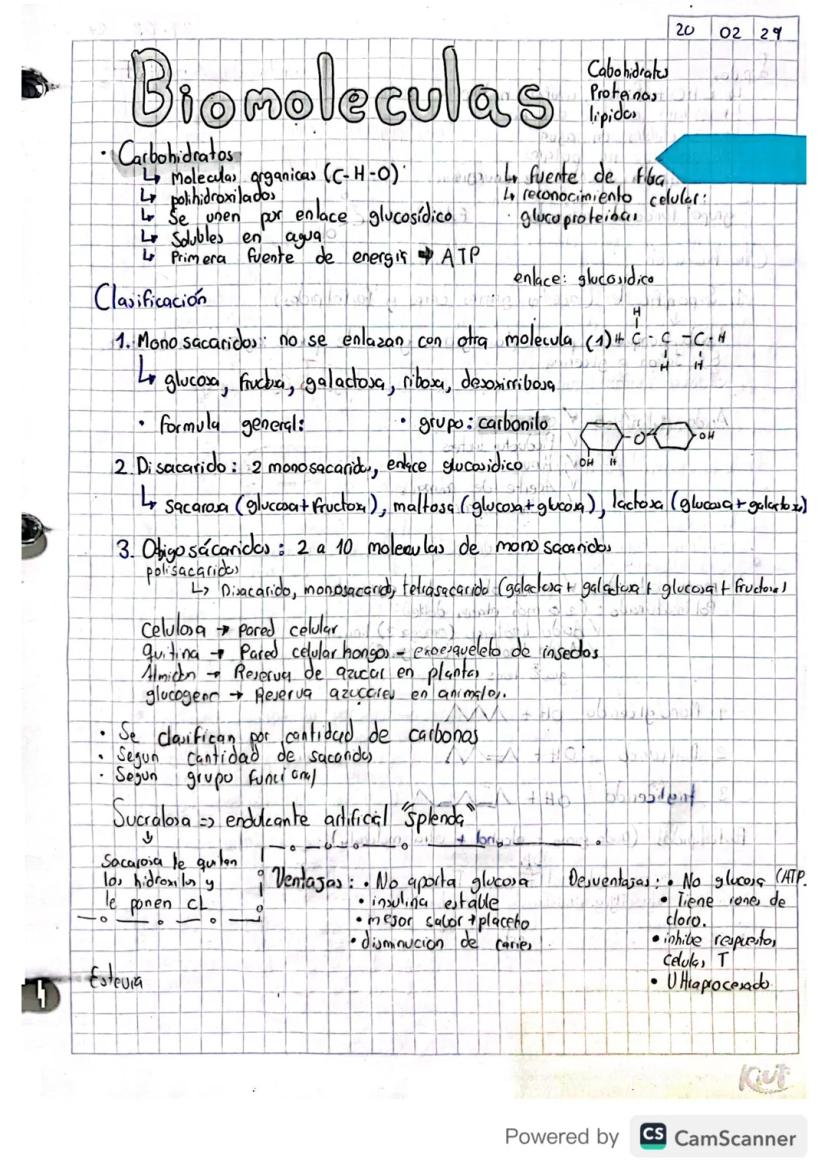 20 02 24
Biomoleculas
Cabohidratos
Proteinas
lipidos
· Carbohidratos
↳ Moleculas organicas (C-H-O)
↳ polihidroxilados
↳ Se unen por enlace glucosídico
↳ Solubles en agua
↳ Primera fuente de energis → ATP
↳ fuente de fiba
↳ reconocimiento celular:
glucoproteinas
enlace: glucosidico
Clasificación
1. Mono sacaridos: no se enlazan con otra molecula (1) H C - C - C - H
H
H H
↳ glucosa, fructosa, galactosa, ribosa, desoxirribosa
• formula general:
• grupo: carbonilo
O OH
OH H
2. Disacarido: 2 monosacaridos, enlace glucosidico
↳ Sacarosa (glucosa+fructosa), maltosa (glucosa+glucosa), lactosa (glucosa+galactosa)
3. Oligosácaridos: 2 a 10 moleculas de mono sacaridos
polisacaridos
↳ Disacarido, monosacarido, tetrasacarido (galactosa + galactosa + glucosa + fructosa)
Celulosa → pared celular
quitina → Pared celular hongos - exoesqueleto de insectos
Almidon → Reserva de azucar en plantas
glucogeno → Reserva azucares en animales.
• Se clasifican por cantidad de carbonos
• Segun cantidad de sacaridos
• Segun grupo funcional
Sucralosa => endulcante artificial "Splenda"
↓
Sacarosa le quitan
los hidroxilos y
le ponen CL
Ventajas: • No aporta glucosa
• insulina estable
• mejor sabor + placebo
• disminucion de caries
Desventajas: • No glucosa (ATP.
• Tiene iones de
cloro.
• inhibe respuestas
celulas T
• Ultraprocesado
Estevia
Kiut
Powered by CS CamScanner